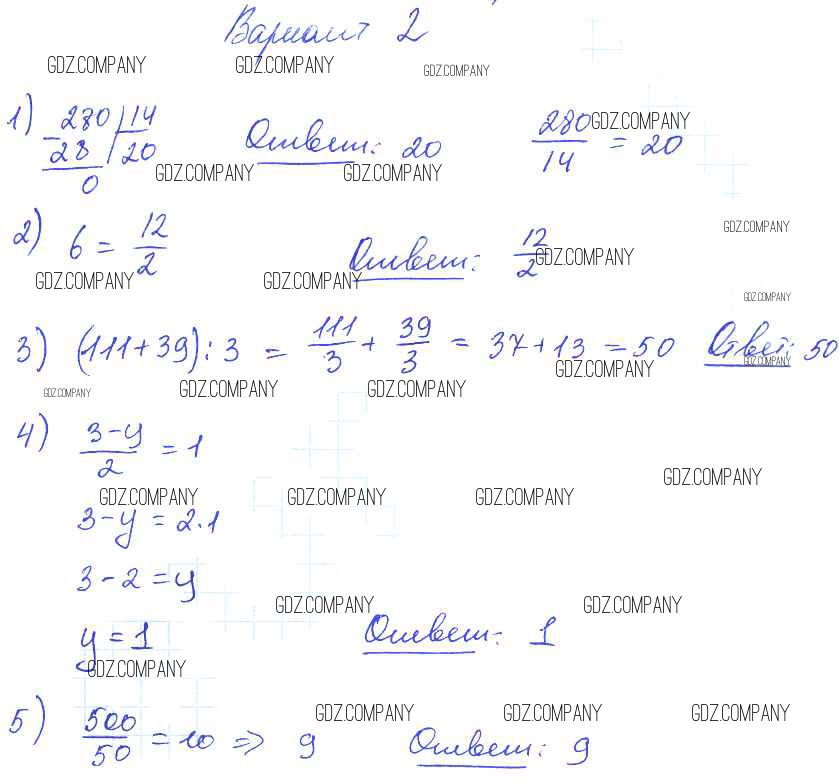 Вариант 2
GDZ.COMPANY GDZ.COMPANY GDZ.COMPANY
1) 280 | 14 Ответ: 20 280/14 = 20 GDZ.COMPANY
- 28 | 20
0 GDZ.COMPANY GDZ.COMPANY
GDZ.COMPANY
2) 6 = 12/2 Ответ: 12/2 GDZ.COMPANY
GDZ.COMPANY GDZ.COMPANY
GDZ.COMPANY
3) (111+39):3 = 111/3 + 39/3 = 37+13 = 50 Ответ: 50
GDZ.COMPANY GDZ.COMPANY
GDZ.COMPANY GDZ.COMPANY GDZ.COMPANY
4) 3-y/2 = 1
GDZ.COMPANY
GDZ.COMPANY GDZ.COMPANY GDZ.COMPANY
3-y = 2·1
3-2 = y
GDZ.COMPANY GDZ.COMPANY
y = 1 Ответ: 1
GDZ.COMPANY
5) 500/50 = 10 => 9 Ответ: 9
GDZ.COMPANY GDZ.COMPANY GDZ.COMPANY